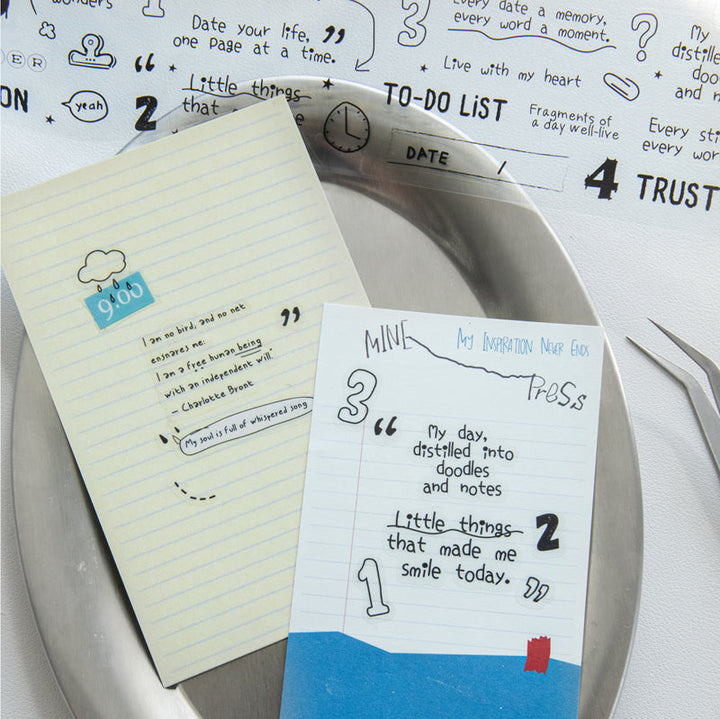 wonders
1
Date your life,
one page at a time. ”
3
every date a memory,
every word a moment.
?
My
distille
doo
and n
Live with my heart
E R
yeah
“
2
Little things
that
ON
TO-DO LiST
Fragments of
a day well-live
Every sti
every wor
DATE /
4 TRUST
9:00
I am no bird, and no net
ensnares me:
I am a free human being
with an independent will.
– Charlotte Bront
”
My soul is full of whispered song
MINE
PreSs
My Inspiration Never Ends
3
“ My day,
distilled into
doodles
and notes
Little things 2
that made me
smile today. ”
1